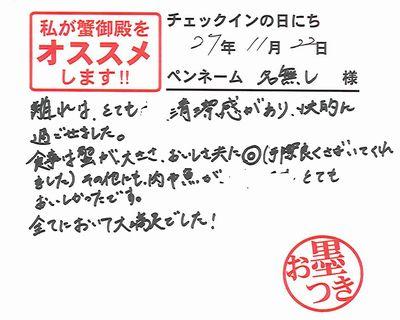 私が蟹御殿を
オススメ
します!!
チェックインの日にち
27年 11月 22日
ペンネーム 名無し 様
離れは、とても 清潔感があり、快的に
過ごせました。
食事は蟹が大きさ、おいしさ共に◎(手際良くさばいてくれ
ました)その他にも、肉や魚が、 とても
おいしかったです。
全てにおいて大満足でした!
お墨つき